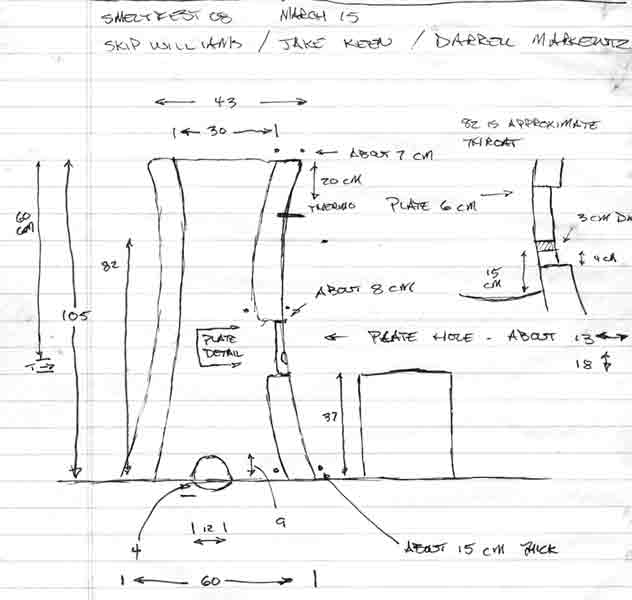 SMELTFEST 08 MARCH 15
SKIP WILLIAMS / JAKE KEEN / DARRELL MARKEWITZ
43
30
82 IS APPROXIMATE
THROAT
ABOUT 7 CM
20 CM
THERMO
PLATE 6 CM
3 CM DA
4 CM
15
CM
60
CM
82
105
ABOUT 8 CM
PLATE
DETAIL
PLATE HOLE - ABOUT 13
18
37
9
12
4
ABOUT 15 CM THICK
60